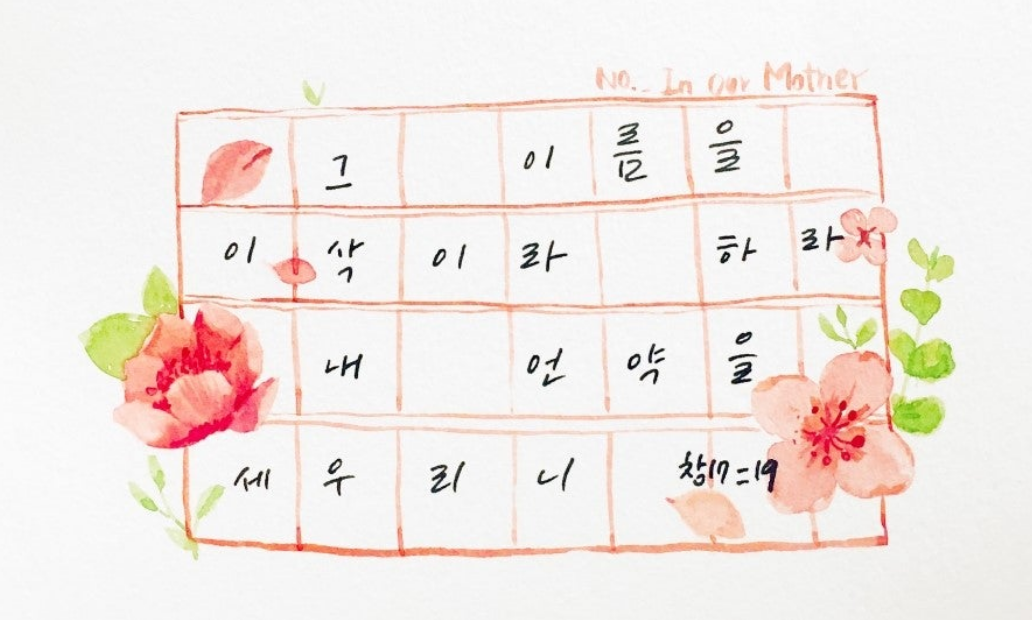 No.. In our Mother
그 이름을
이삭이라 하라
내 언약을
세우리니 창17=19